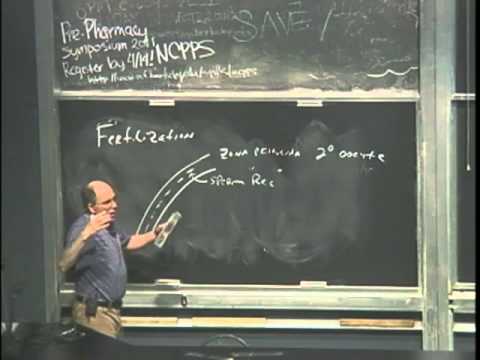 SAVE!
Pre-Pharmacy
Symposium 2011
Register by 4/14! NCPPS
Fertilization
Zona Pellucida 2° oocyte
Sperm Rec